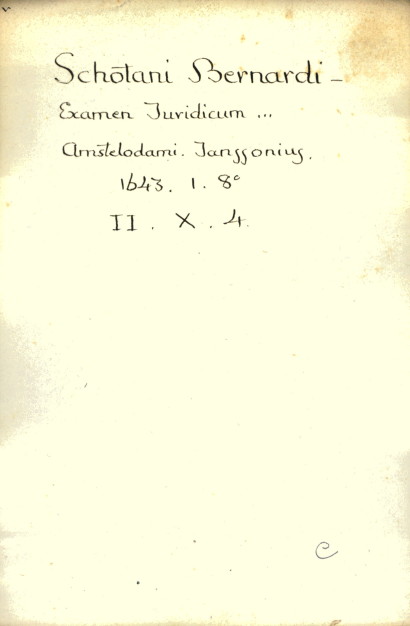 Schotani Bernardi -
Examen Iuridicum ...
Amstelodami. Janssonius.
1643. 1. 8°
II. X. 4.
C